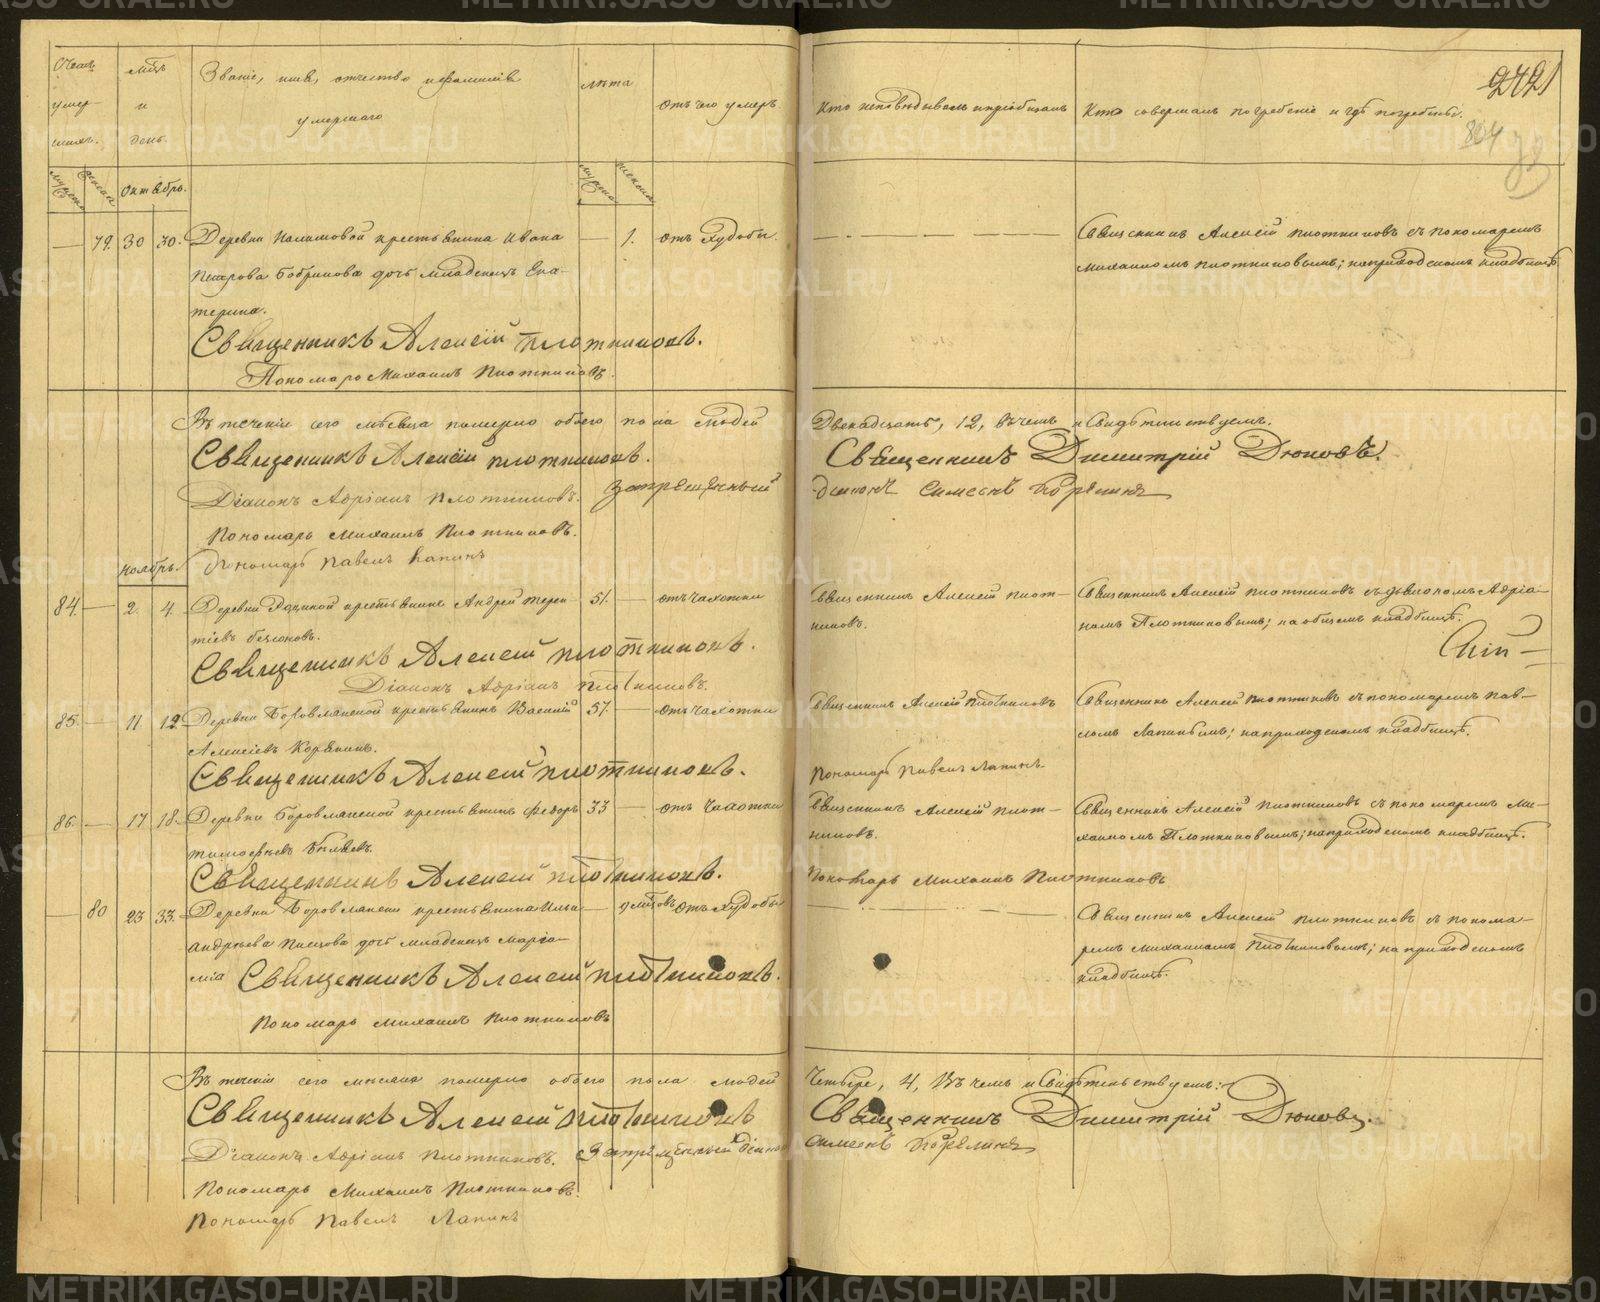 Счетъ умер- шихъ.
мѣсяцъ и день.
Званіе, имя, отчество и фамилія умершаго
лѣта
отъ чего умеръ
Кто исповѣдывалъ и пріобщалъ
Кто совершалъ погребеніе и гдѣ погребены.
2421
Октябрь.
79. 30 30. Деревни крестьянина Ивана — 1. отъ худобы.
Петрова Бобрикова дочь младенецъ Ека-
терина.
Священникъ Алексій Плотниковъ съ пономаремъ
Михаиломъ Плотниковымъ; на приходскомъ кладбищѣ.
Священникъ Алексій Плотниковъ.
Пономарь Михаилъ Плотниковъ.
Въ теченіи сего мѣсяца померло обоего пола людей
Двенадцать, 12, въ чемъ и свидѣтельствуемъ.
Священникъ Алексій Плотниковъ.
Священникъ Димитрій Дюковъ.
Діаконъ Адріанъ Плотниковъ. Запрещенный
діаконъ Симеонъ
Пономарь Михаилъ Плотниковъ.
Пономарь Павелъ Лапинъ
Ноябрь.
84. — 2. 4. Деревни крестьянинъ Андрей Терен- 51. — отъ чахотки
тіевъ
Священникъ Алексій Плот-
никовъ.
Священникъ Алексій Плотниковъ съ діакономъ Адріа-
номъ Плотниковымъ; на общемъ кладбищѣ.
Священникъ Алексій Плотниковъ.
Діаконъ Адріанъ Плотниковъ.
85. — 11 12 Деревни Боровлянской крестьянинъ Василій 57. — отъ чахотки
Алексіевъ
Священникъ Алексій Плотниковъ
Священникъ Алексій Плотниковъ съ пономаремъ Пав-
ломъ Лапинымъ; на приходскомъ кладбищѣ.
Священникъ Алексій Плотниковъ.
Пономарь Павелъ Лапинъ
86. — 17 18. Деревни Боровлянской крестьянинъ Федоръ 33 — отъ чахотки
Тимофеевъ Бѣляевъ.
Священникъ Алексій Плот-
никовъ.
Священникъ Алексій Плотниковъ съ пономаремъ Ми-
хаиломъ Плотниковымъ; на приходскомъ кладбищѣ.
Священникъ Алексій Плотниковъ.
Пономарь Михаилъ Плотниковъ
— 80 23 33. Деревни Боровлянской крестьянина Ильи — 9 мѣсяцовъ отъ худобы
Андреева дочь младенецъ Маріа-
мія
Священникъ Алексій Плотниковъ съ понома-
ремъ Михаиломъ Плотниковымъ; на приходскомъ
кладбищѣ.
Священникъ Алексій Плотниковъ.
Пономарь Михаилъ Плотниковъ
Въ теченіи сего мѣсяца померло обоего пола людей
Четыре, 4, въ чемъ и свидѣтельствуемъ:
Священникъ Алексій Плотниковъ
Священникъ Димитрій Дюковъ.
Діаконъ Адріанъ Плотниковъ. Запрещенный діаконъ
Симеонъ
Пономарь Михаилъ Плотниковъ.
Пономарь Павелъ Лапинъ
METRIKI.GASO-URAL.RU